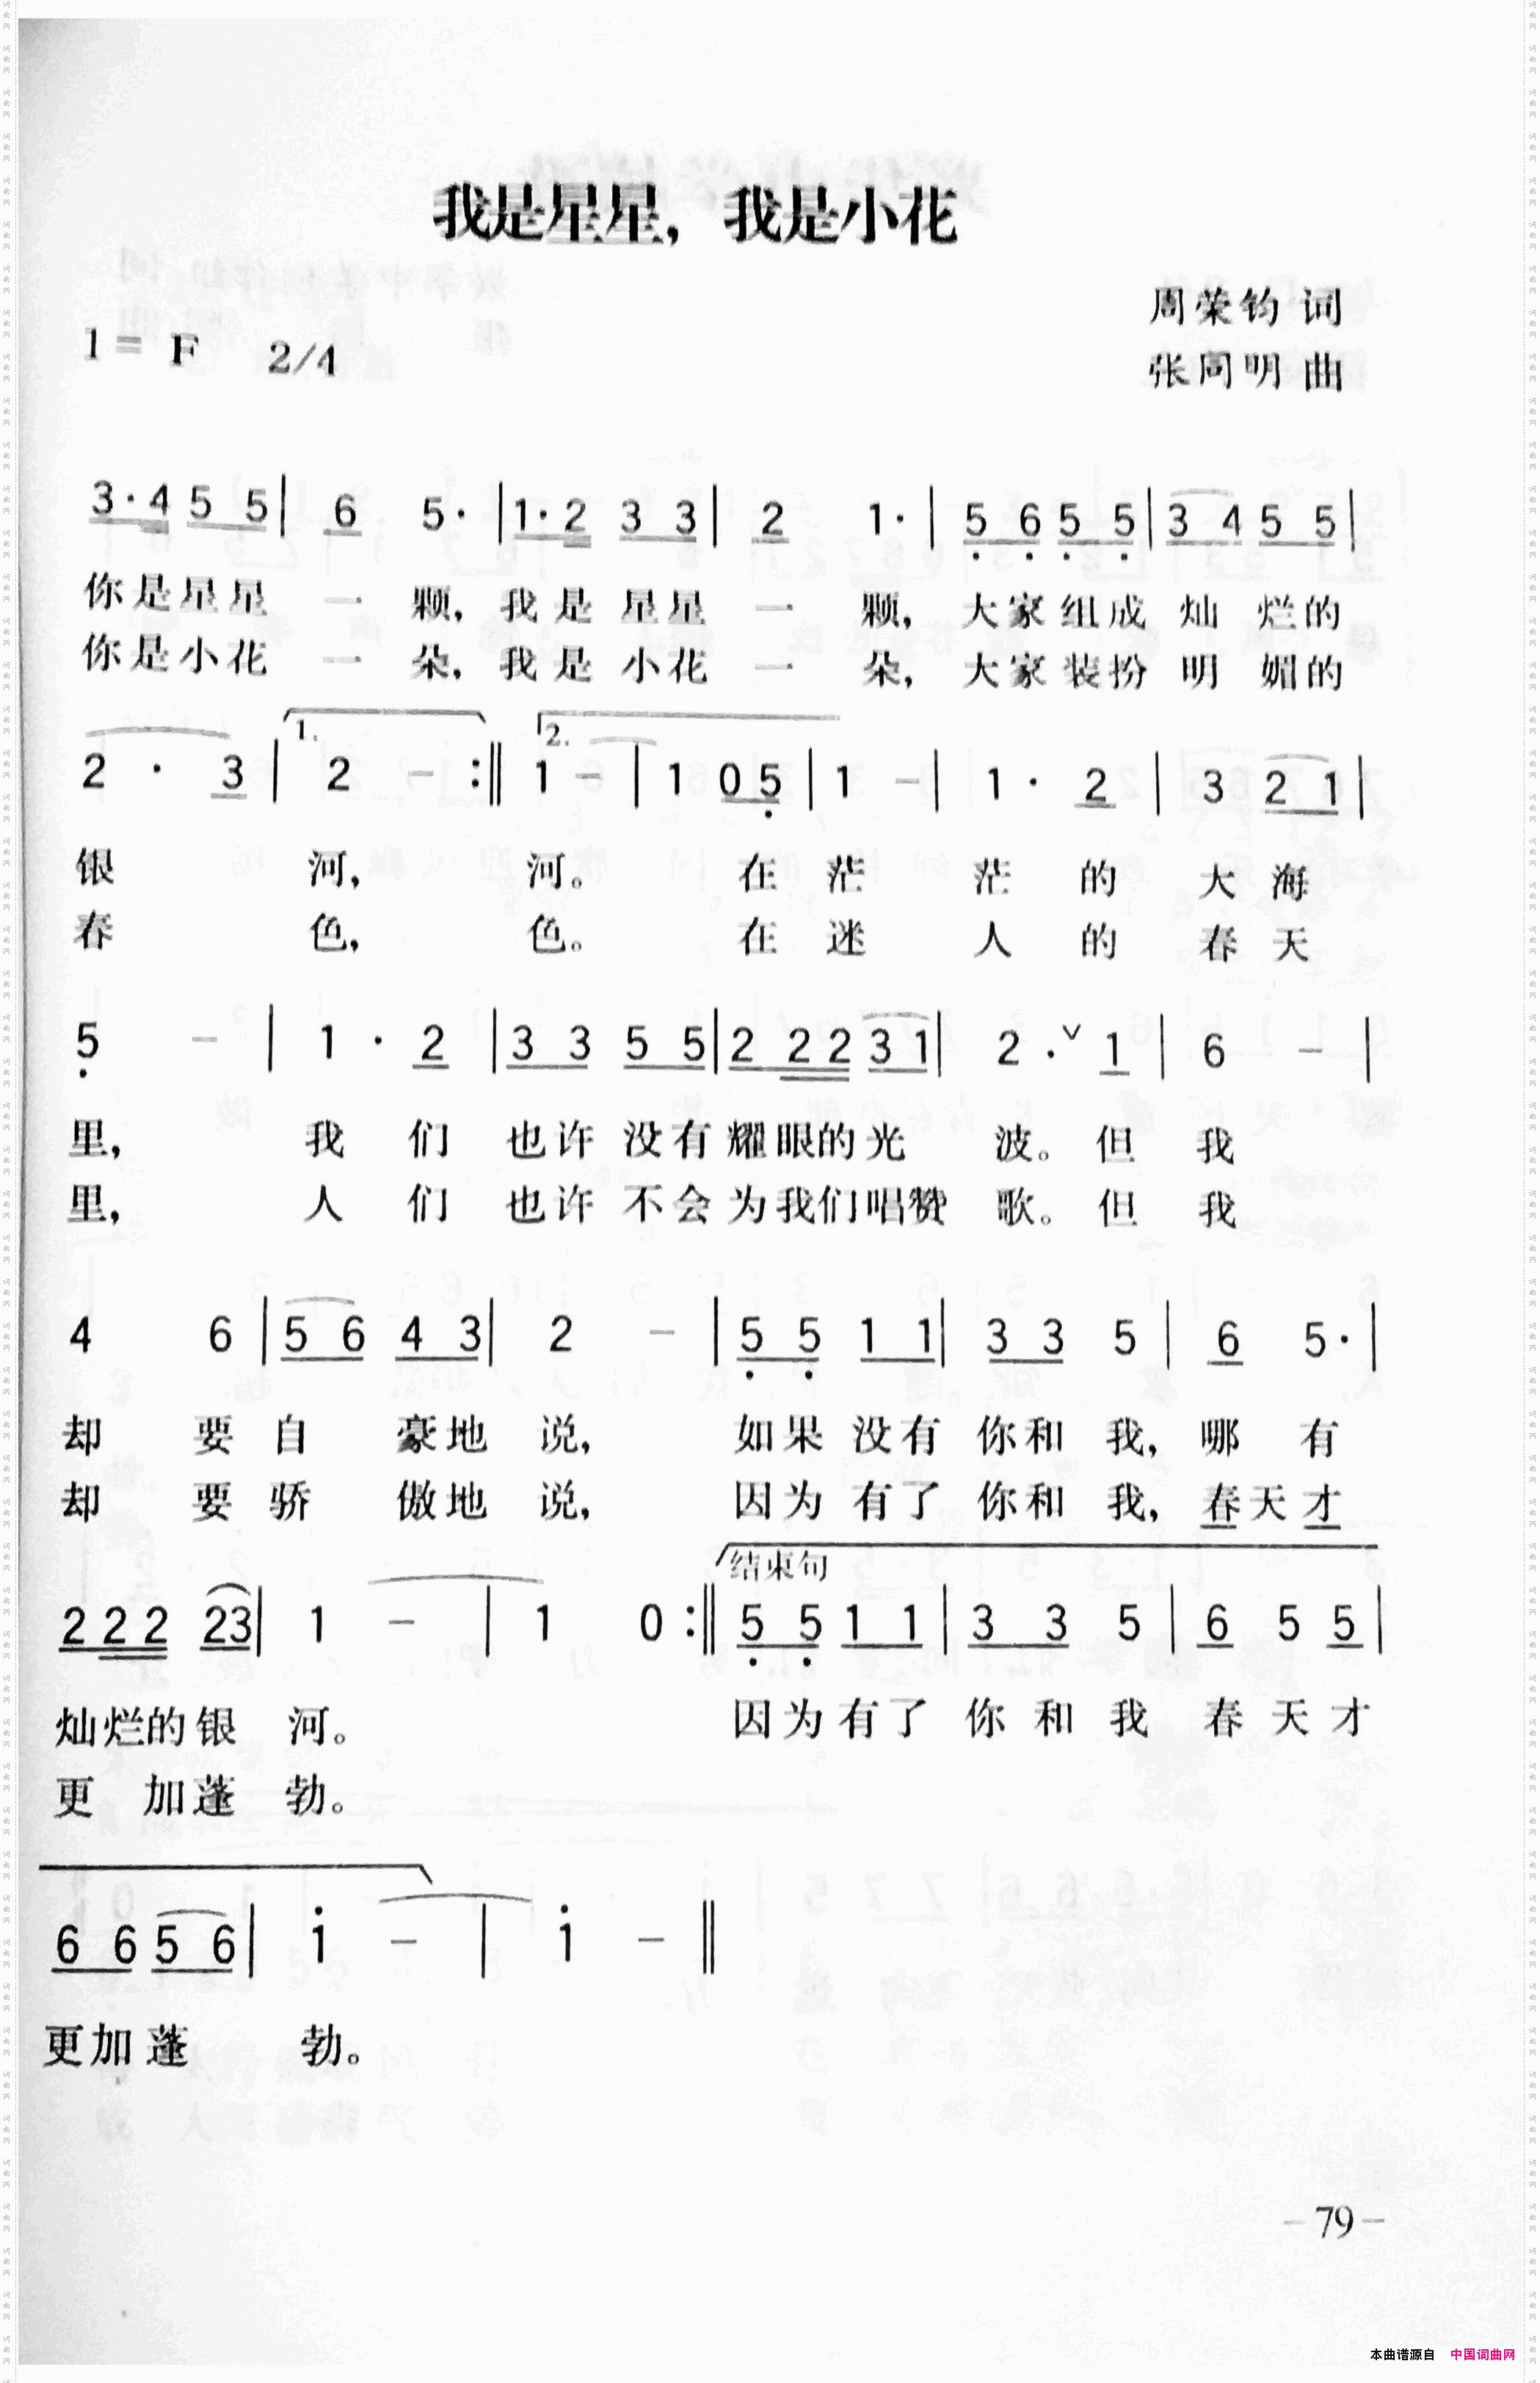 我是星星，我是小花
周荣钧 词
1= F 2/4
张同明 曲
3·4 5 5| 6 5· |1·2 3 3| 2 1· | 5 6 5 5|3 4 5 5|
你是星星 一 颗，我是 星星 一 颗，大家组成 灿 烂的
你是小花 一 朵，我是 小花 一 朵，大家装扮 明 媚的
1. 2.
2 · 3 | 2 – :‖ 1 – | 1 0 5 | 1 – | 1 · 2 | 3 2 1 |
银 河， 河。 在 茫 茫 的 大 海
春 色， 色。 在 迷 人 的 春 天
5 – | 1 · 2 |3 3 5 5|2 2 2 3 1| 2 ·ˇ 1 | 6 – |
里， 我 们 也许 没有 耀眼的光 波。但 我
里， 人 们 也许 不会 为我们唱赞 歌。但 我
4 6 |5 6 4 3| 2 – |5 5 1 1| 3 3 5 | 6 5· |
却 要 自 豪地 说， 如果 没有 你和 我，哪 有
却 要 骄 傲地 说， 因为 有了 你和 我，春天才
结束句
2 2 2 2 3| 1 – | 1 0 :‖ 5 5 1 1 | 3 3 5 | 6 5 5 |
灿烂的银 河。 因为有了 你 和 我 春 天 才
更 加蓬 勃。
6 6 5 6 | i – | i – ‖
更加蓬 勃。
– 79 –
本曲谱源自 中国词曲网